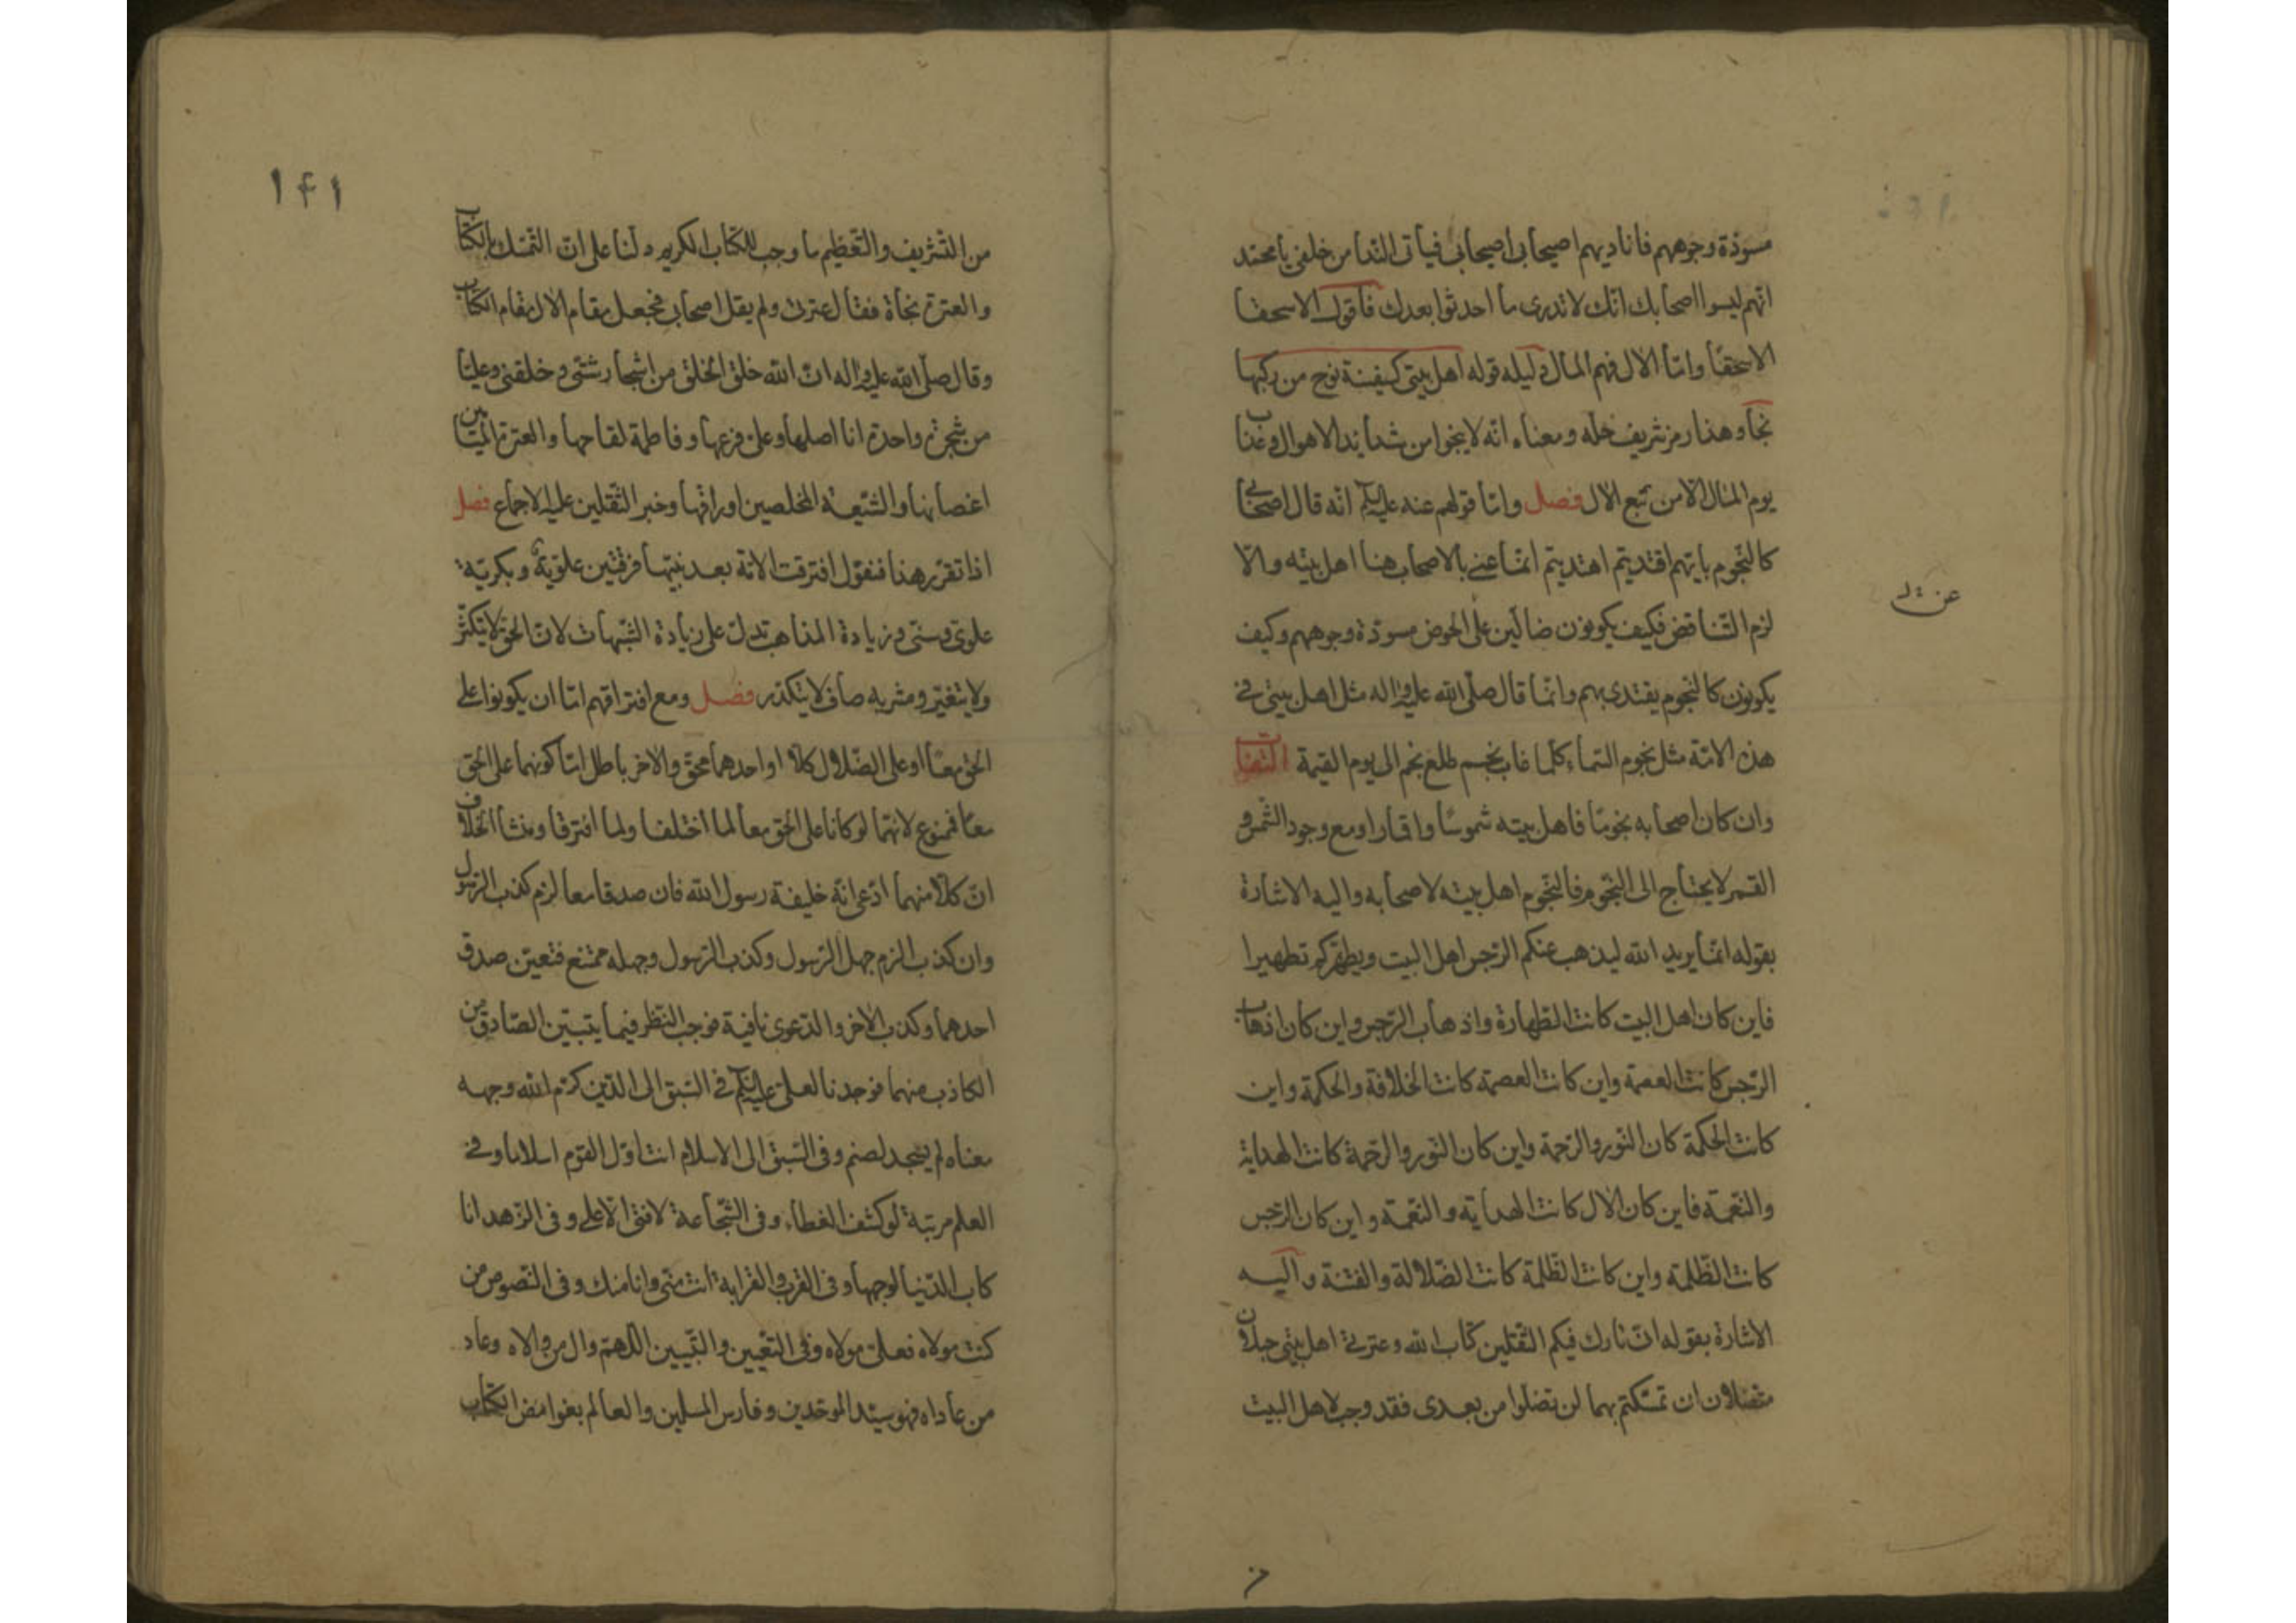 مسودّة وجوههم فاناديهم اصيحابى اصيحابى فيأتى الندا من خلفى يا محمد
انهم ليسوا اصحابك انك لا تدرى ما احدثوا بعدك فاقول الا سحقا
الا سحقا وامّا الآل فهم المال دليله قوله اهل بيتى كسفينة نوح من ركبها
نجا وهذا رمز شريف حله ومعناه انه لا ينجوا من شدايد الاهوال وعذاب
يوم المآل الا من تبع الآل فصل وامّا قولهم عنه عليه السلم انه قال اصحابى
كالنجوم بايهم اقتديتم اهتديتم انما عنى بالاصحاب هنا اهل بيته والّا
لزم التناقض فكيف يكونون ضالّين على الحوض مسودّة وجوههم وكيف
يكونون كالنجوم يقتدى بهم وانما قال صلّى الله عليه واله مثل اهل بيتى فى
هذه الامّة مثل نجوم السّماء كلّما غاب نجم طلع نجم الى يوم القيمة التفات
وان كان اصحابه نجومًا فاهل بيته شموسًا واقمارا ومع وجود الشمس و
القمر لا يحتاج الى النجوم فالنجوم اهل بيته لا صحابه واليه الاشارة
بقوله انما يريد الله ليذهب عنكم الرّجس اهل البيت ويطهّركم تطهيرا
فاين كان اهل البيت كانت الطهارة واذهاب الرّجس واين كان اذهاب
الرّجس كانت العصمة واين كانت العصمة كانت الخلافة والحكمة واين
كانت الحكمة كان النّور والرّحمة واين كان النّور والرّحمة كانت الهداية
والنّعمة فاين كان الآل كانت الهداية والنّعمة واين كان الرّجس
كانت الظّلمة واين كانت الظّلمة كانت الضّلالة والفتنة واليه
الاشارة بقوله انّى تارك فيكم الثّقلين كتاب الله وعترتى اهل بيتى حبلان
متصلان ان تمسّكتم بهما لن تضلّوا من بعدى فقد وجب لاهل البيت
١٤١
من التّشريف والتّعظيم ما وجب للكتاب الكريم دلّنا على انّ التّمسّك بالكتاب
والعترة نجاة فقال عترتى ولم يقل اصحابى فجعل مقام الآل مقام الكتاب
وقال صلّى الله عليه واله انّ الله خلق الخلق من اشجار شتّى وخلقنى وعليّا
من شجرة واحدة انا اصلها وعلى فرعها وفاطمة لقاحها والعترة الميامين
اغصانها والشّيعة المخلصين اوراقها وخبر الثّقلين عليه الاجماع فصل
اذا تقرّر هذا فنقول افترقت الامّة بعد نبيّها فرقتين علويّة وبكريّة
علوى وسنّى وزيادة المذاهب تدلّ على زيادة الشّبهات لانّ الحقّ لا يتكثّر
ولا يتغيّر ومشربه صاف لا يتكدّر فصل ومع افتراقهم امّا ان يكونوا على
الحقّ معًا او على الضّلال كلّا او احدهما محقّ والاخر باطل امّا كونهما على الحقّ
معًا فممنوع لانّهما لو كانا على الحقّ معا لما اختلفا ولما افترقا ومنشأ الخلاف
انّ كلّا منهما ادّعى انّه خليفة رسول الله فان صدقا معا لزم كذب الرّسول
وان كذبا لزم جهل الرّسول وكذب الرّسول وجهله ممتنع فتعيّن صدق
احدهما وكذب الاخر والدّعوى نافية فوجب النّظر فيما يتبيّن الصّادق من
الكاذب منهما فوجدنا لعلى عليه السلم فى السّبق الى الدّين كرّم الله وجهه
معناه لم يسجد لصنم وفى السّبق الى الاسلام انت اوّل القوم اسلاما وفى
العلم مرتبة لو كشف الغطاء وفى الشّجاعة لا فتى الا على وفى الزّهد انا
كاب الدّنيا لوجهها وفى القرب والقرابة انت منّى وانا منك وفى النّصوص من
كنت مولاه فعلى مولاه وفى التّعيين والتّبيين اللّهمّ وال من والاه وعاد
من عاداه فهو سيّد الموحّدين وفارس المسلمين والعالم بغوامض الكتاب